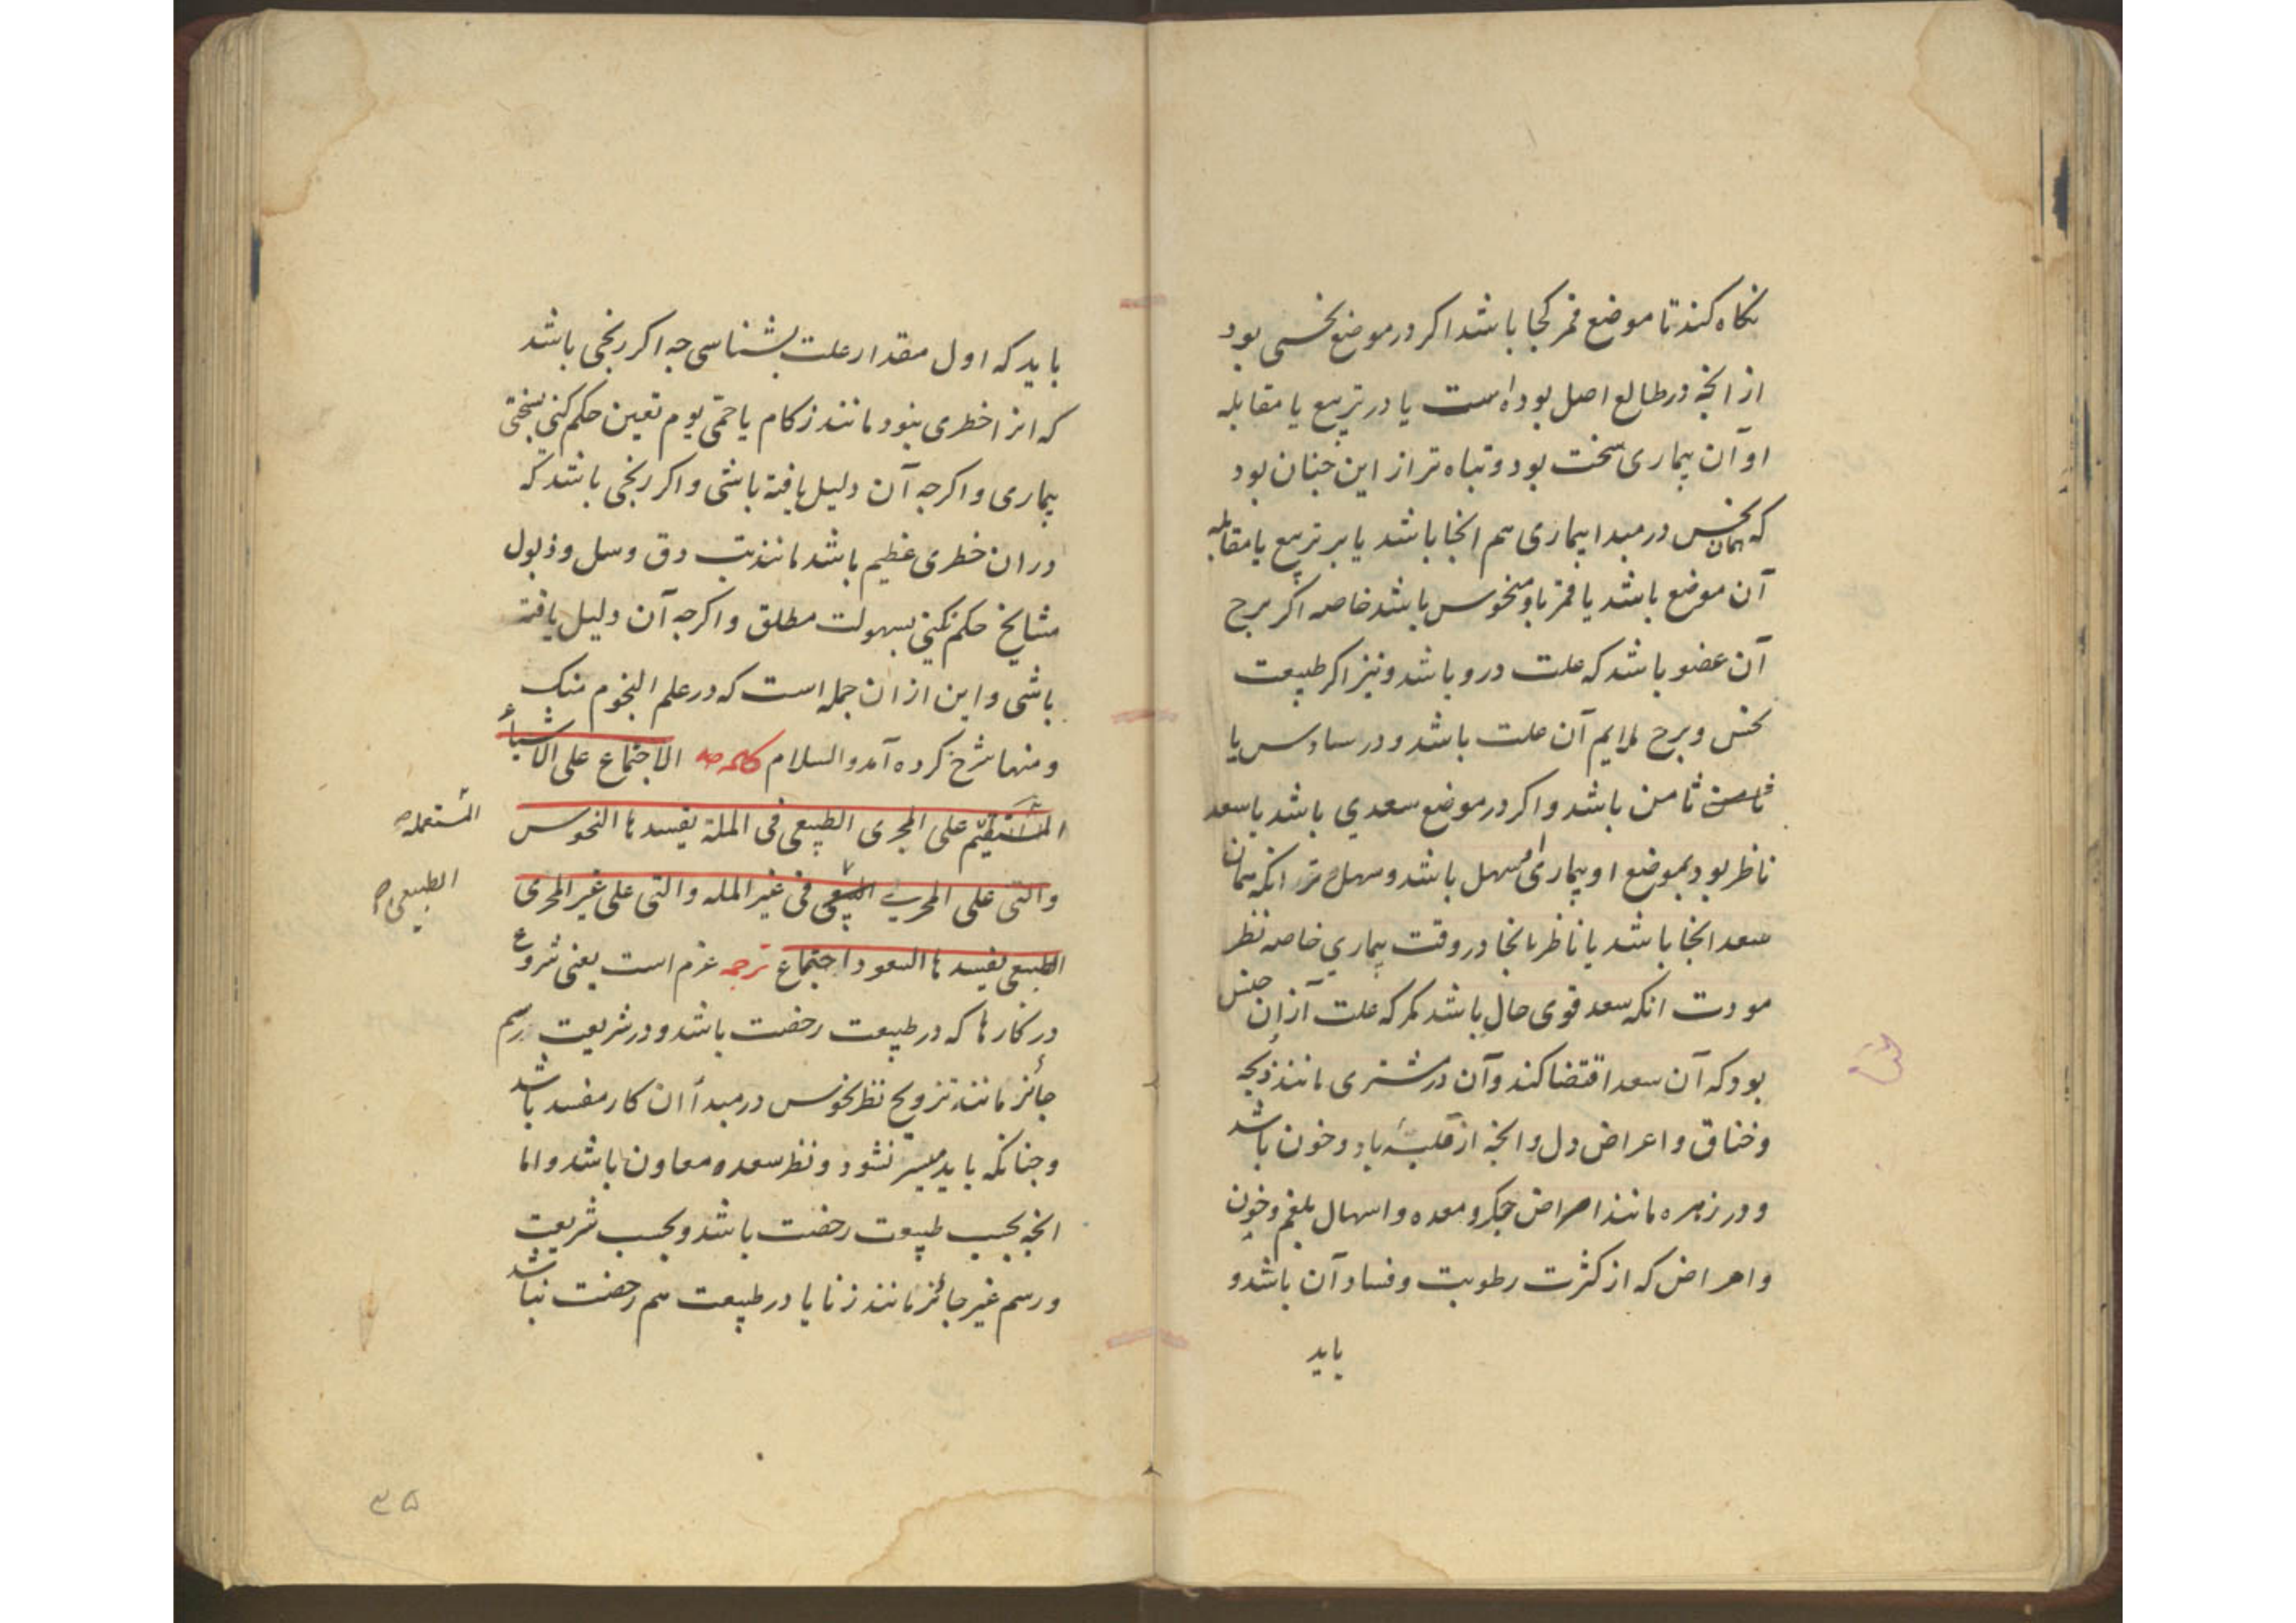 نكاه كند تا موضع قمر كجا باشد اكر در موضع نحسى بود
از انجه در طالع اصل بوده است يا در تربيع يا مقابله
او آن بيمارى سخت بود و تباه تر از اين جنان بود
كه همان نحس در مبدا بيمارى هم انجا باشد يا بر تربيع يا مقابله
آن موضع باشد يا قمر باو منحوس باشد خاصه اكر برج
آن عضو باشد كه علت درو باشد و نيز اكر طبيعت
نحس و برج ملايم آن علت باشد و در سادس يا
ثامن باشد و اكر در موضع سعدي باشد يا سعد
ناظر بود بموضع او بيمارى سهل باشد و سهل تر انكه همان
سعد انجا باشد يا ناظر بانجا در وقت بيماري خاصه نظر
مودت انكه سعد قوى حال باشد مكر كه علت از ان جنس
بود كه آن سعد اقتضا كند و آن در مشترى مانند ذبحه
و خناق و اعراض دل و انجه از غلبۀ باد و خون باشد
و در زهره مانند امراض جكر و معده و اسهال بلغم و خون
و امراض كه از كثرت رطوبت و فساد آن باشد و
بايد
بايد كه اول مقدار علت بشناسى جه اكر رنجى باشد
كه انرا خطرى نبود مانند زكام يا حمّى يوم تعين حكم كنى بسختى
بيمارى و اكرجه آن دليل يافته باشى و اكر رنجى باشد كه
در ان خطرى عظيم باشد مانند تب دق و سل و ذبول
مشايخ حكم نكنى بسهولت مطلق و اكرجه آن دليل يافته
باشى و اين از ان جمله است كه در علم النجوم منك
و منها شرح كرده آمد والسلام كلمه الاجتماع على الأشياء
على المجرى الطبيعى فى الملة يفسدها النحوس
المستعمله
والتى على المجرى فى غير المله والتى على غير المجرى
الطبيعى
الطبيعى يفسدها السعود اجتماع ترجمه عزم است يعنى شروع
در كارها كه در طبيعت رخصت باشد و در شريعت و رسم
جائز مانند تزويج نظر نحوس در مبدأ ان كار مفسد باشد
و جنانكه بايد ميسر نشود و نظر سعود معاون باشد و اما
انجه بحسب طبيعت رخصت باشد و بحسب شريعت
و رسم غير جائز مانند زنا يا در طبيعت هم رخصت نباشد
۳۵